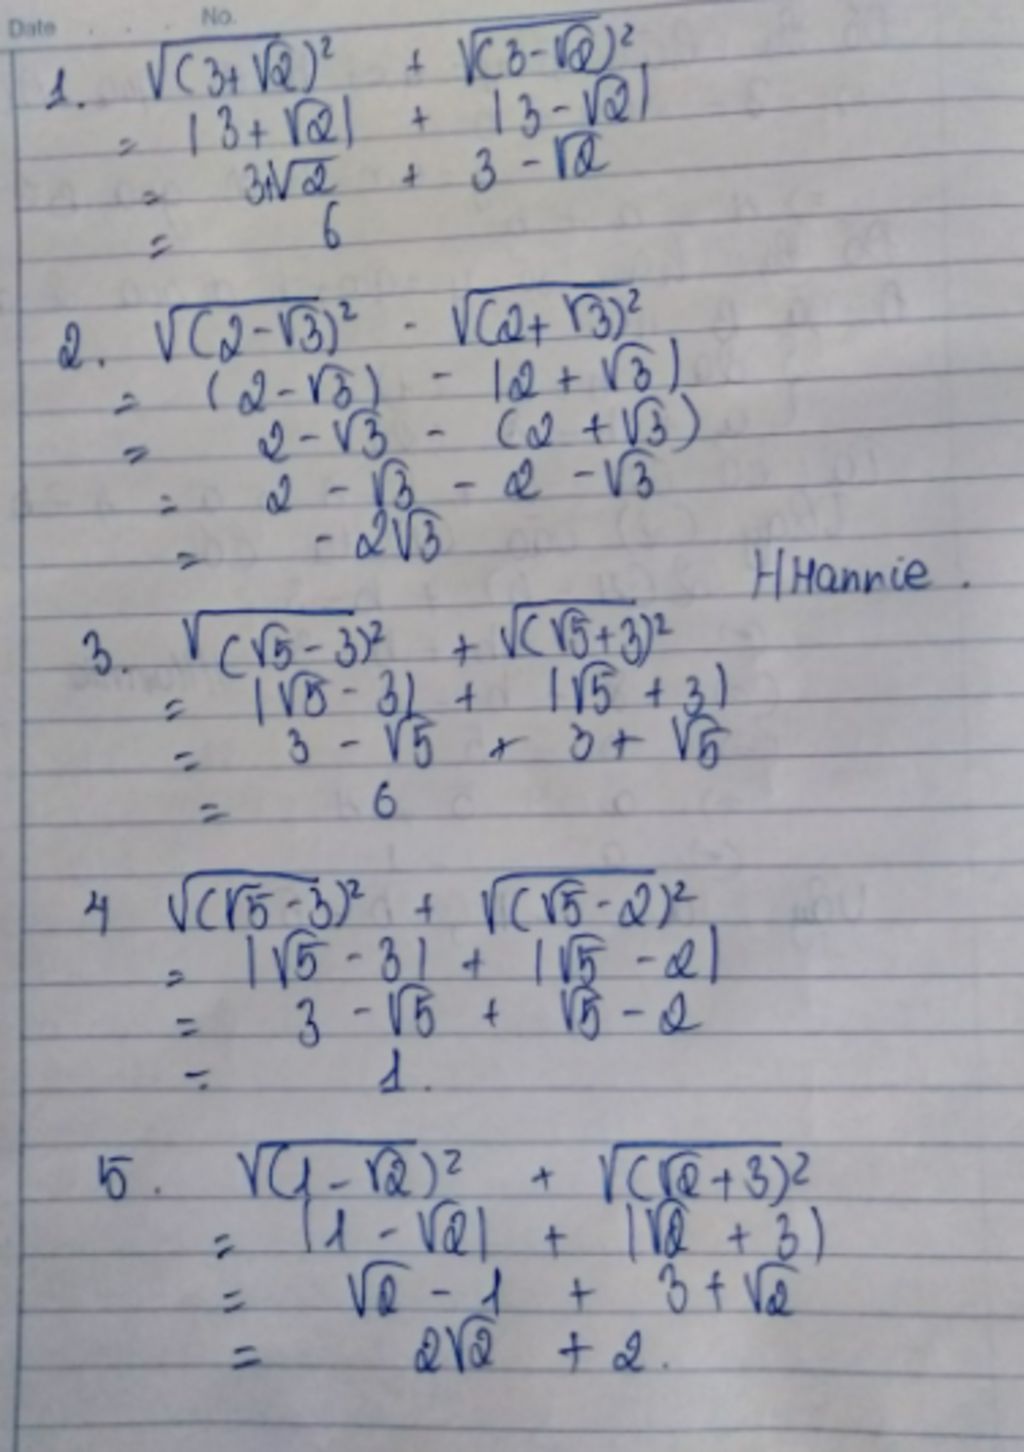 Date . . . No.
1. √(3+√2)² + √(3-√2)²
= |3+√2| + |3-√2|
= 3+√2 + 3-√2
= 6
2. √(2-√3)² - √(2+√3)²
= (2-√3) - |2+√3|
= 2-√3 - (2+√3)
= 2-√3 - 2-√3
= -2√3
HHannie.
3. √(√5-3)² + √(√5+3)²
= |√5-3| + |√5+3|
= 3-√5 + 3+√5
= 6
4 √(√5-3)² + √(√5-2)²
= |√5-3| + |√5-2|
= 3-√5 + √5-2
= 1.
5. √(1-√2)² + √(√2+3)²
= |1-√2| + |√2+3|
= √2-1 + 3+√2
= 2√2 + 2.